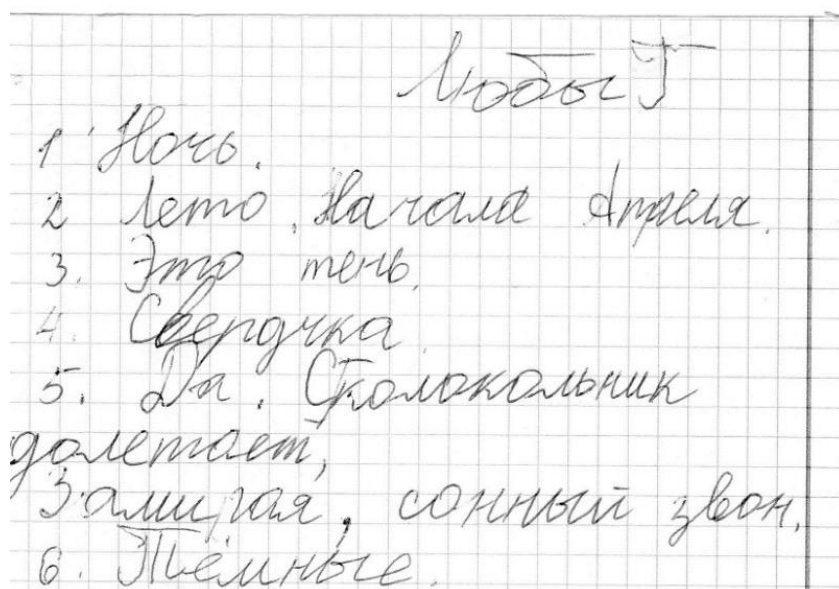 Любы Г
1. Ночь.
2 Лето. Начала Апреля.
3. Это тень.
4. Свердчка.
5. Да. Сколокольник
долетает,
Замирая, сонный звон.
6. Тёмные.